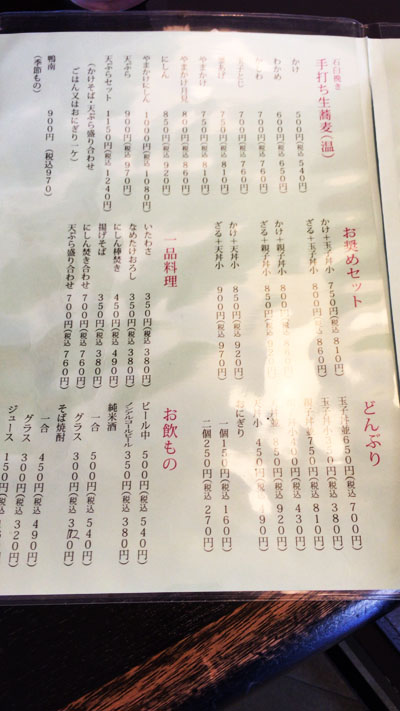 石臼挽き
手打ち生蕎麦(温)
かけ 500円(税込540円)
わかめ 600円(税込650円)
700円(税込760円)
700円(税込760円)
750円(税込810円)
やまかけ 750円(税込810円)
やまかけ月見 800円(税込860円)
にしん 850円(税込920円)
やまかけにしん 1000円(税込1080円)
天ぷら 900円(税込970円)
天ぷらセット 1150円(税込1240円)
(かけそば・天ぷら盛り合わせ
ごはん又はおにぎり一ケ)
鴨南 900円(税込970)
(季節もの)
お奨めセット
かけ+玉子丼小 750円(税込810円)
ざる+玉子丼小 800円(税込860円)
かけ+親子丼小 800円
ざる+親子丼小 850円(税込920円)
かけ+天丼小 850円(税込920円)
ざる+天丼小 900円(税込970円)
一品料理
いたわさ 350円(税込380円)
なめたけおろし 350円(税込380円)
にしん棒焚き 450円(税込490円)
揚げそば 350円(税込380円)
にしん焚き合わせ 700円(税込760円)
天ぷら盛り合わせ 700円(税込760円)
どんぶり
玉子丼並 650円(税込700円)
玉子丼小 380円)
親子丼並 750円(税込810円)
430円)
850円(税込920円)
天丼小 450円(税込490円)
おにぎり
一個 150円(税込160円)
二個 250円(税込270円)
お飲もの
ビール中 500円(税込540円)
ノンアルコールビール 350円(税込380円)
純米酒
一合 500円(税込540円)
グラス 300円(税込3
そば焼酎
一合 450円(税込490円)
グラス 300円(税込320円)
ジュース 150円(税込